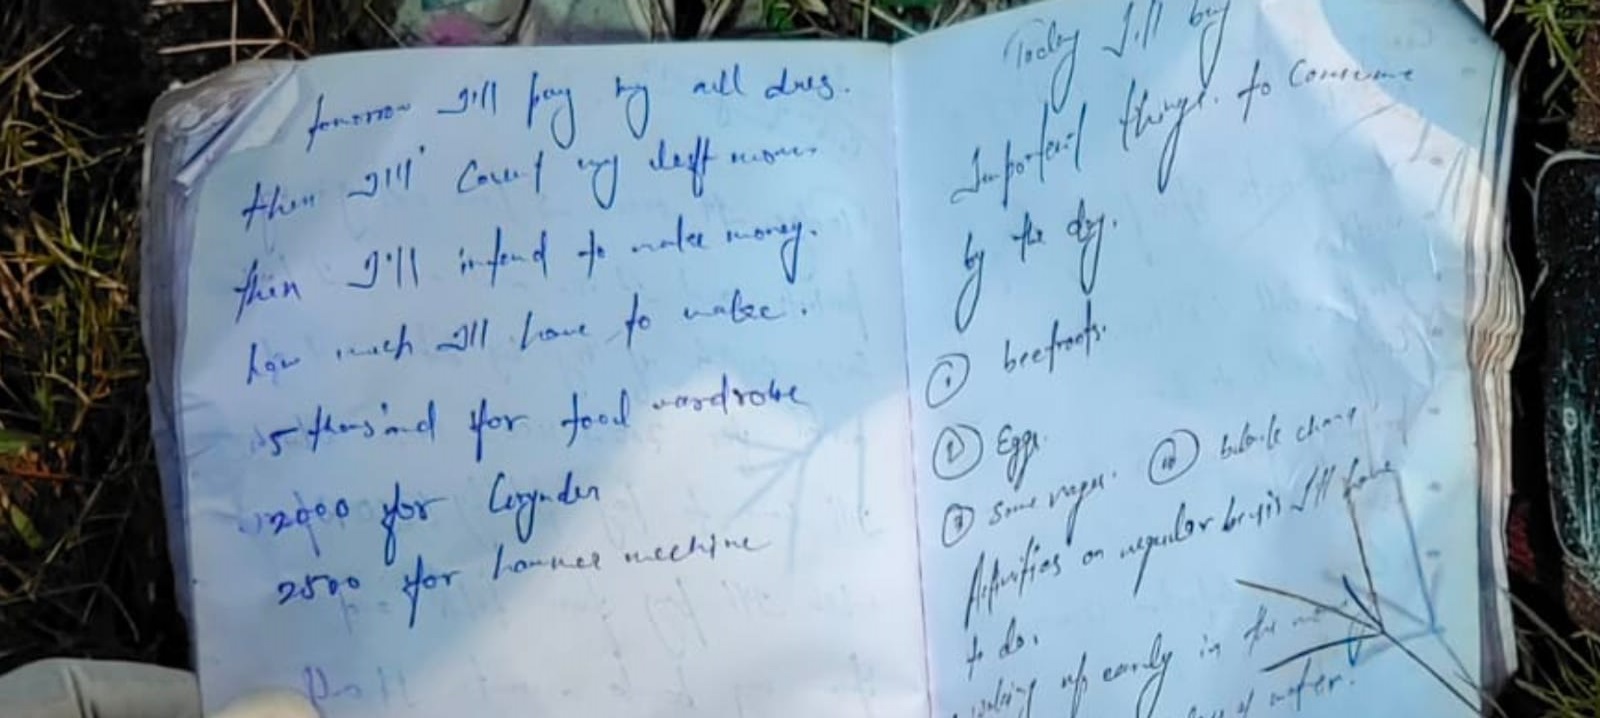 tomorrow I'll pay my all dues.
then I'll Count my left money
then I'll intend to make money.
how much I'll have to make.
5 thousand for food wardrobe
2000 for
2500 for hammer mechine
Today I'll buy
Important things. to Consume
by the day.
① beetroots.
② Eggs.
③ some
Activities on regular basis I'll have
to do.
waking up early in the
of water.